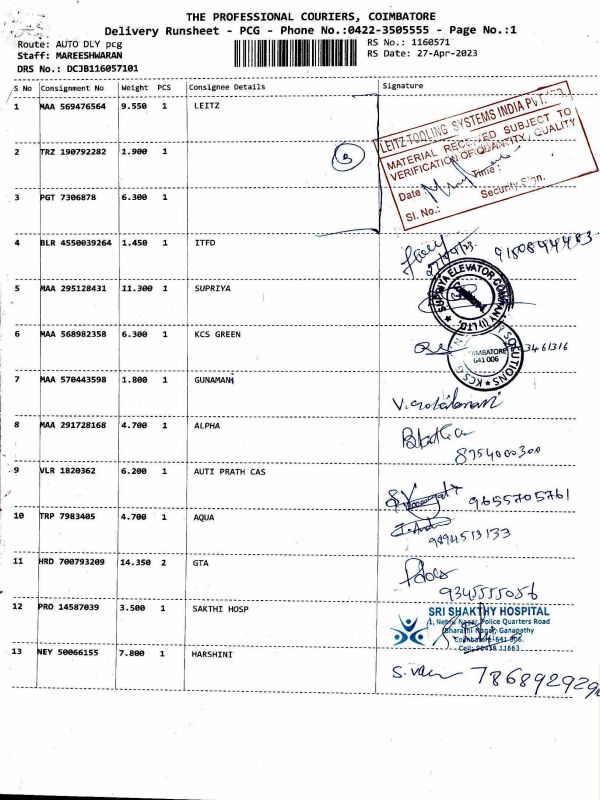 THE PROFESSIONAL COURIERS, COIMBATORE
Delivery Runsheet - PCG - Phone No.:0422-3505555 - Page No.:1
Route: AUTO DLY pcg
RS No.: 1160571
Staff: MAREESHWARAN
RS Date: 27-Apr-2023
DRS No.: DCJB116057101
S No Consignment No Weight PCS Consignee Details Signature
1 MAA 569476564 9.550 1 LEITZ
LEITZ TOOLING SYSTEMS INDIA PVT. LTD.
MATERIAL RECEIVED SUBJECT TO
VERIFICATION OF QUANTITY / QUALITY
Date: Time:
Sl. No.: Security Sign.
2 TRZ 190792282 1.900 1
3 PGT 7306878 6.300 1
4 BLR 4550039264 1.450 1 ITFD
27/04/23
5 MAA 295128431 11.300 1 SUPRIYA
SUPRIYA ELEVATOR COMPANY (I) LTD.
6 MAA 568982358 6.300 1 KCS GREEN
COIMBATORE
641 006
SOLUTIONS
3461316
7 MAA 570443598 1.800 1 GUNAMANI
8 MAA 291728168 4.700 1 ALPHA
8754000300
9 VLR 1820362 6.200 1 AUTI PRATH CAS
9655705761
10 TRP 7983405 4.700 1 AQUA
9894513133
11 HRD 700793209 14.350 2 GTA
9345555056
12 PRO 14587039 3.500 1 SAKTHI HOSP
SRI SHAKTHY HOSPITAL
1, Nehru Nagar, Police Quarters Road
Bharathi Nagar, Ganapathy
Coimbatore-641 006.
Cell: 90438 11663
13 NEY 50066155 7.800 1 HARSHINI
786892929